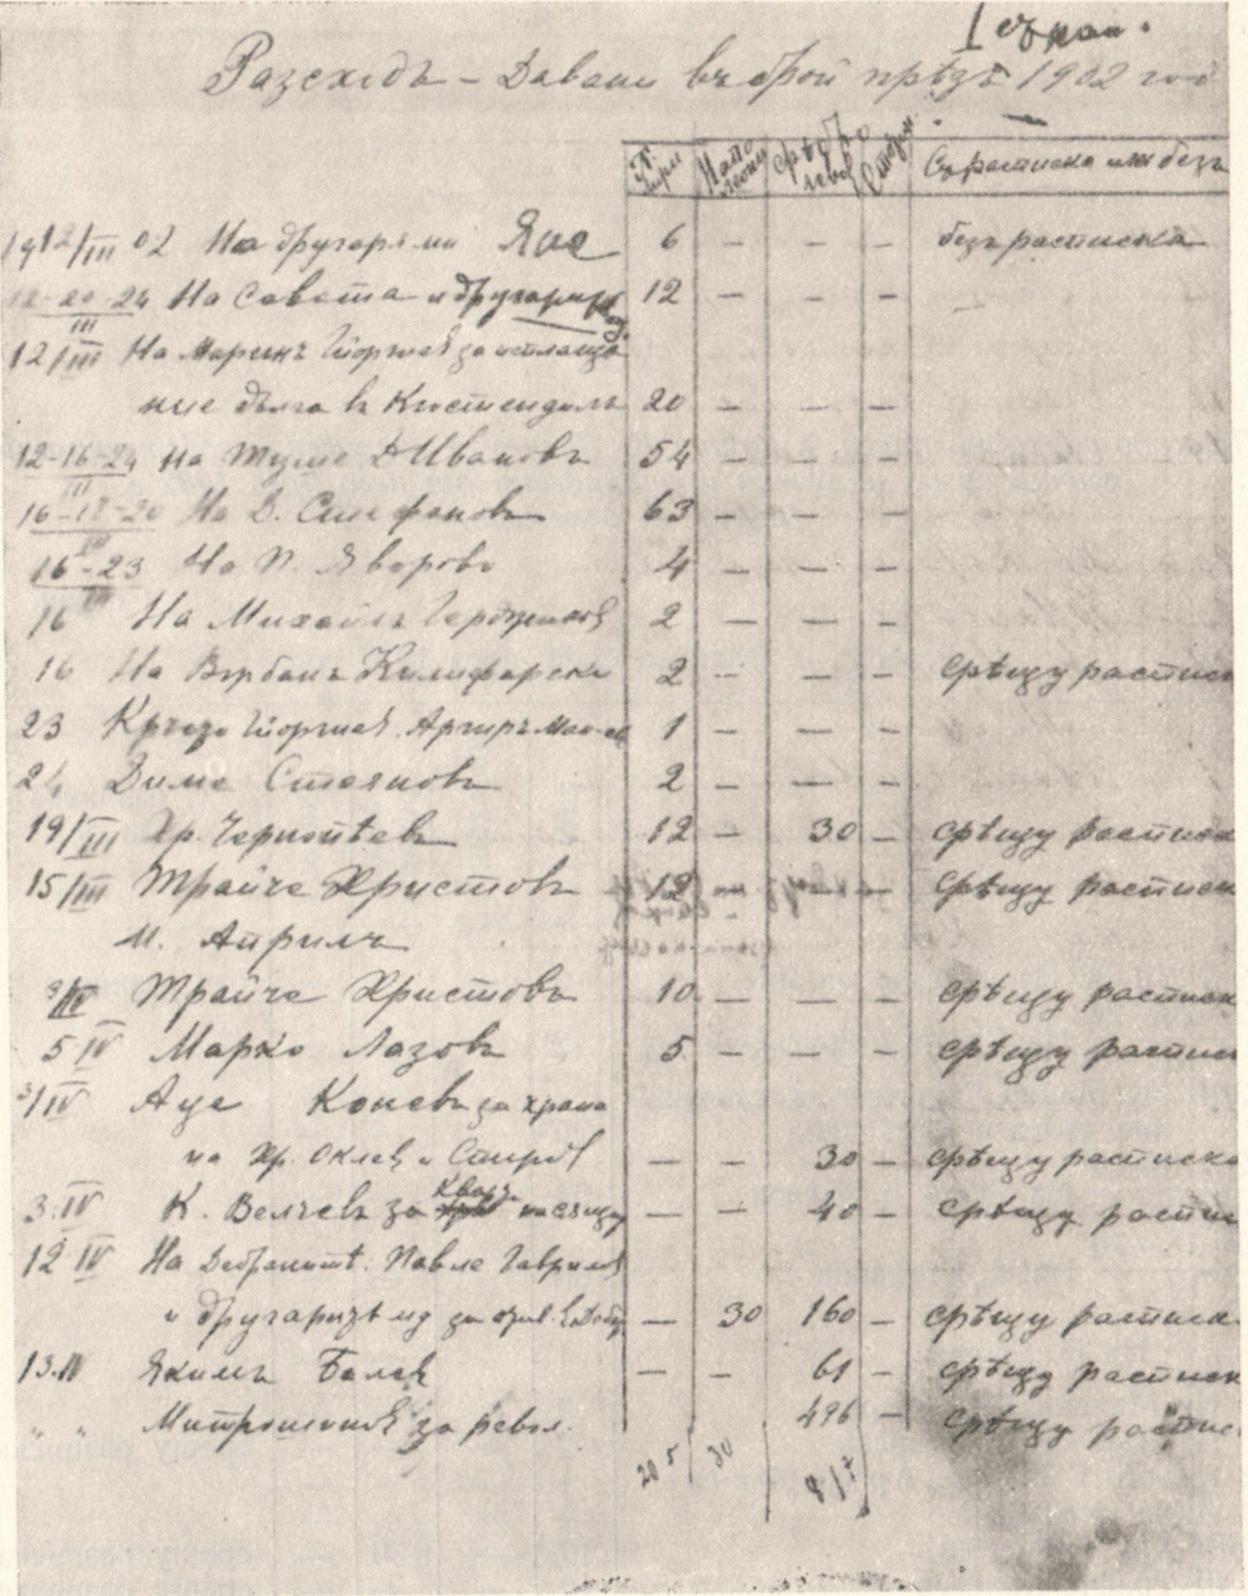 Разходъ – Давани въ брой прѣзъ 1902 год
Т. лири Напо леони срѣбро лева Стотин. Съ расписка или безъ
1912/III 02 На другаря ми Яне 6 – – – безъ расписка
12-20-24 III На Савата и другари 12 – – –
12/III На Маринъ Гюргиев за исплаща
ние дълга въ Кюстендилъ 20 – – –
12-16-24 III На Туше Д Ивановъ 54 – – –
16-18-20 III На Д. Стефановъ 63 – – –
16-23 III На П. Яворовъ 4 – – –
16 На Михаилъ Герджиков 2 – – –
16 На Върбанъ Килифарски 2 – – – срѣщу расписк
23 Гюргиев. Аргиръ 1 – – –
24 Диме Стояновъ 2 – – –
19/III Хр. Чернопѣевъ 12 – 30 – срѣщу расписк
15/III Трайче Христовъ 12 – – – срѣщу расписк
М. Априлъ
3/IV Трайче Христовъ 10 – – – срѣщу расписк
5 IV Марко Лазовъ 5 – – – срѣщу распис
3/IV Аце Коневъ за храна
на Хр. и Спиров – – 30 – срѣщу расписка
3.IV К. Велчевъ за – – 40 – срѣщу распис
12 IV На Павле Гаврилов
и другаризѣ му за – 30 160 – срѣщу расписк
13.IV Якимъ Балев – – 61 – срѣщу расписк
" " за револ. 496 – срѣщу распис
205 30 817